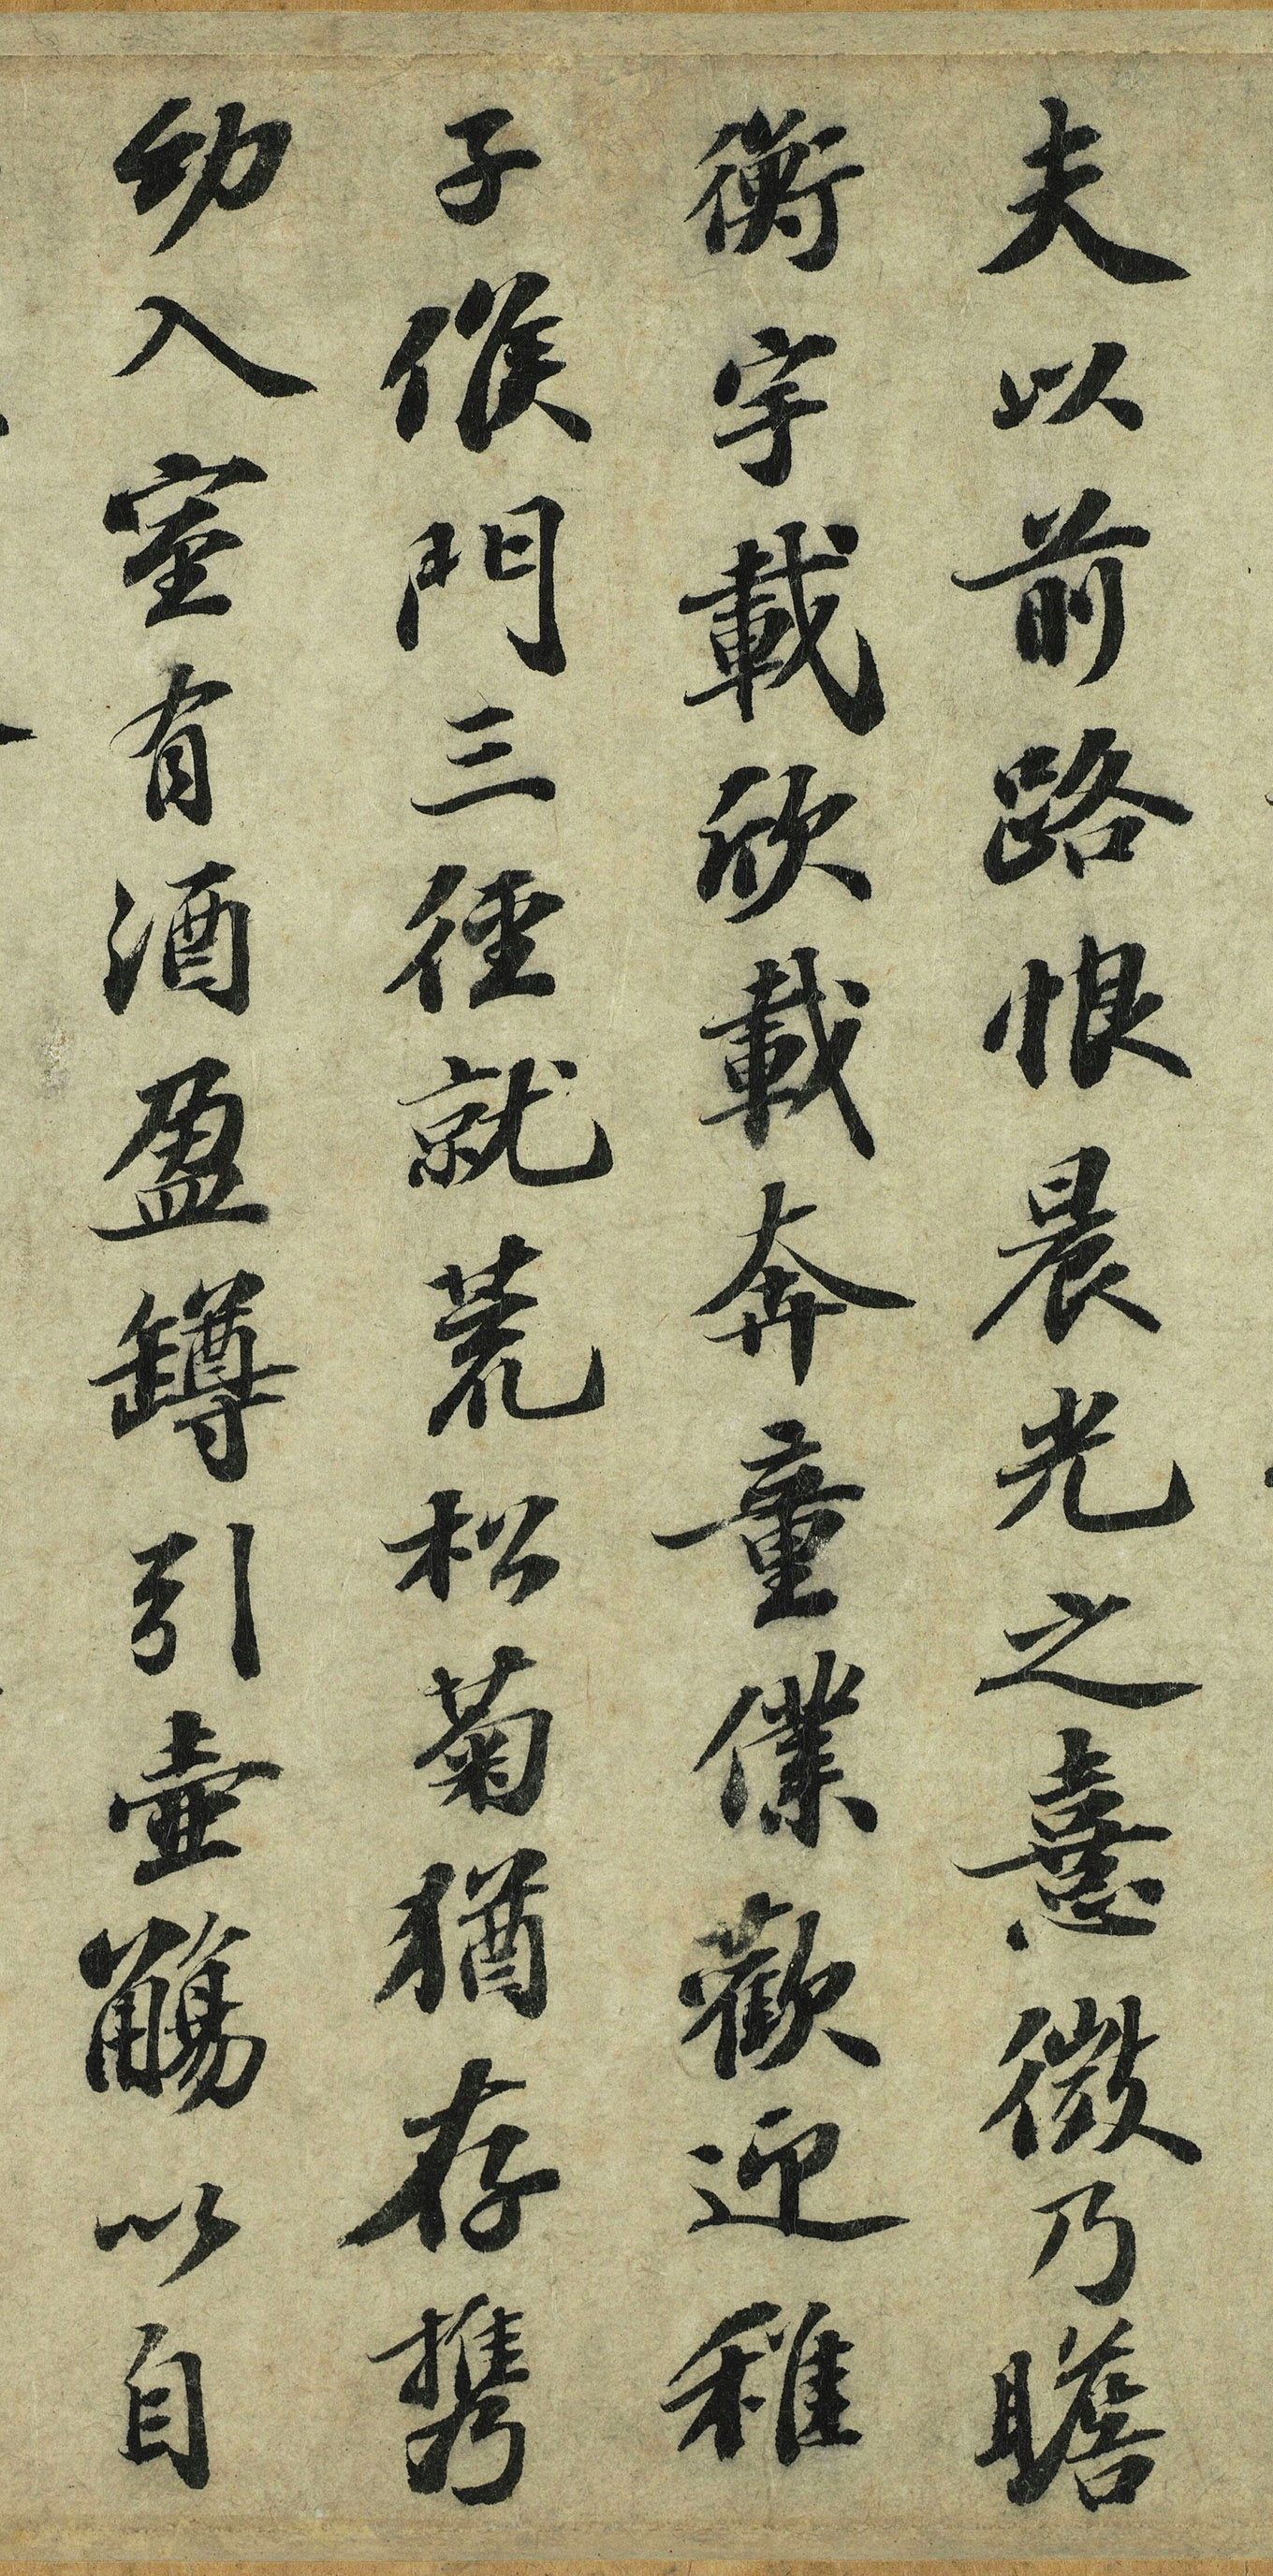 夫以前路恨晨光之憙微乃瞻
衡宇載欣載奔童僕歡迎稚
子候門三徑就荒松菊猶存携
幼入室有酒盈罇引壺觴以自